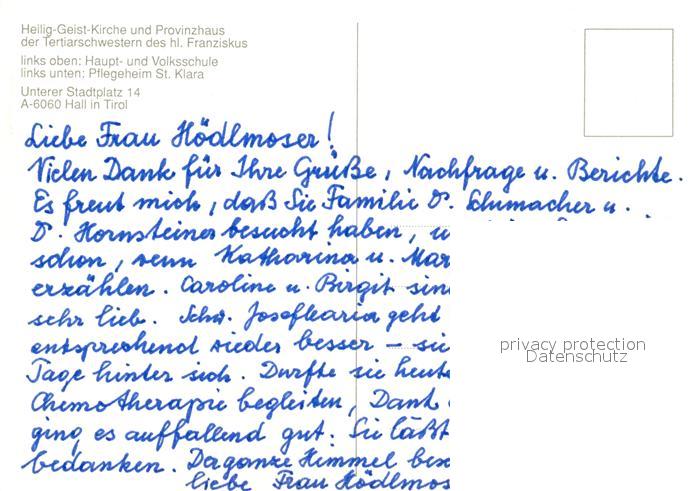 Heilig-Geist-Kirche und Provinzhaus
der Tertiarschwestern des hl. Franziskus
links oben: Haupt- und Volksschule
links unten: Pflegeheim St. Klara
Unterer Stadtplatz 14
A-6060 Hall in Tirol
Liebe Frau Hödlmoser!
Vielen Dank für Ihre Grüße, Nachfrage u. Berichte.
Es freut mich, daß Sie Familie D. Schumacher u.
D. Hornsteiner besucht haben, u
schon, wenn Katharina u. Mar
erzählen. Caroline u. Birgit sin
sehr lieb. Schw. geht
entsprechend wieder besser – sie
Tage hinter sich. Durfte sie heute
Chemotherapie begleiten, Dank
ging es auffallend gut. Sie läßt
bedanken. Da ganze Himmel bes
liebe Frau Hödlmos
privacy protection
Datenschutz